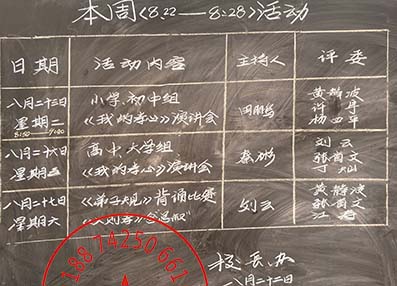 本周(8.22——8.28)活动
日期 活动内容 主持人 评委
八月二十三日 小学、初中组 黄静波
星期二 《我的孝心》演讲会 田鹏鸟 许丹
8:50 9:00 杨四平
八月二十六日 高中、大学组 刘云
星期五 《我的孝心》演讲会 蔡彬 张首文
八月二十七日 《弟子规》背诵比赛 黄静波
星期六 刘云 张首文
校长办
八月二十二日
1887A250661